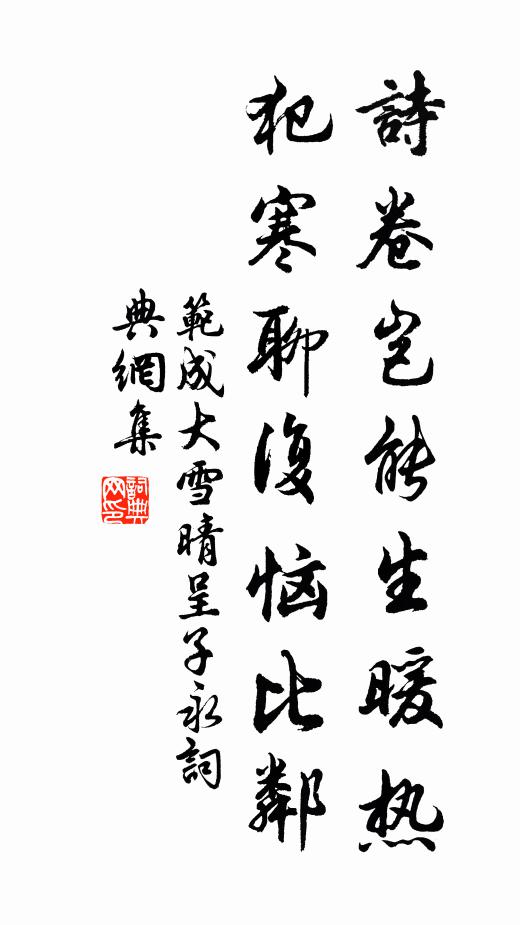 詩卷岂能生暖热
犯寒聊復恼比鄰
範成大雪晴呈子永詞
典網集
詞典
网印